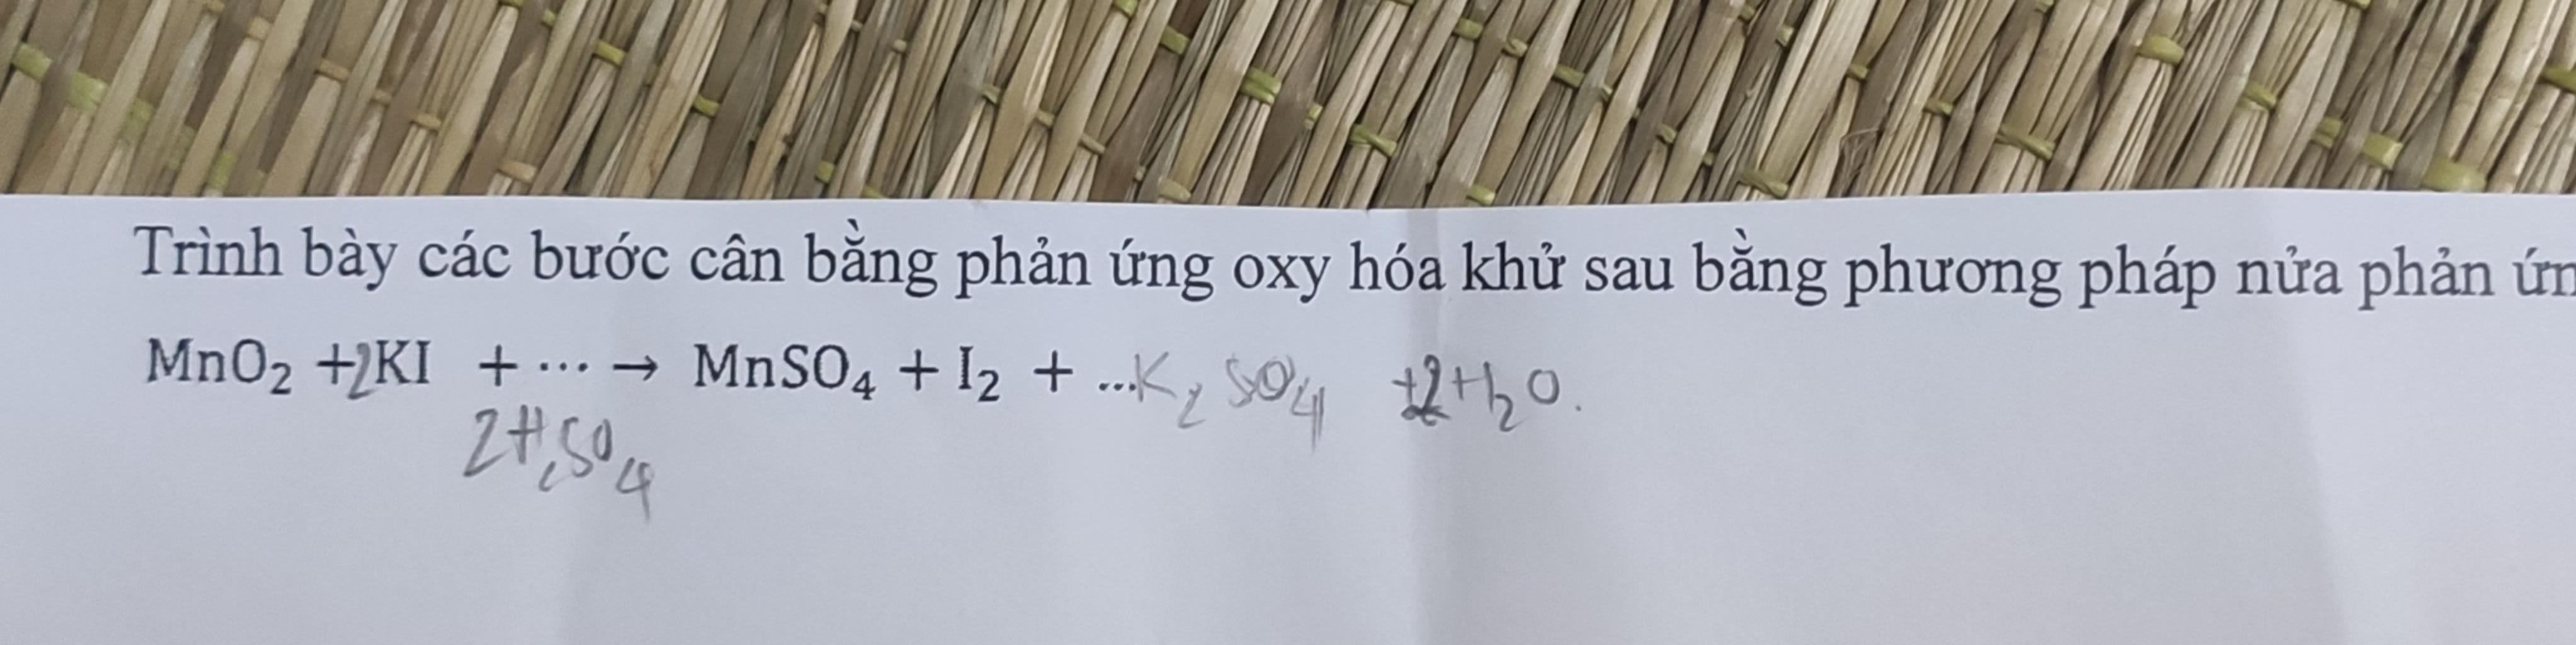 Trình bày các bước cân bằng phản ứng oxy hóa khử sau bằng phương pháp nửa phản ứn
MnO₂ +2KI + ⋯ → MnSO₄ + I₂ + ...K₂SO₄ +2H₂O.
2H₂SO₄